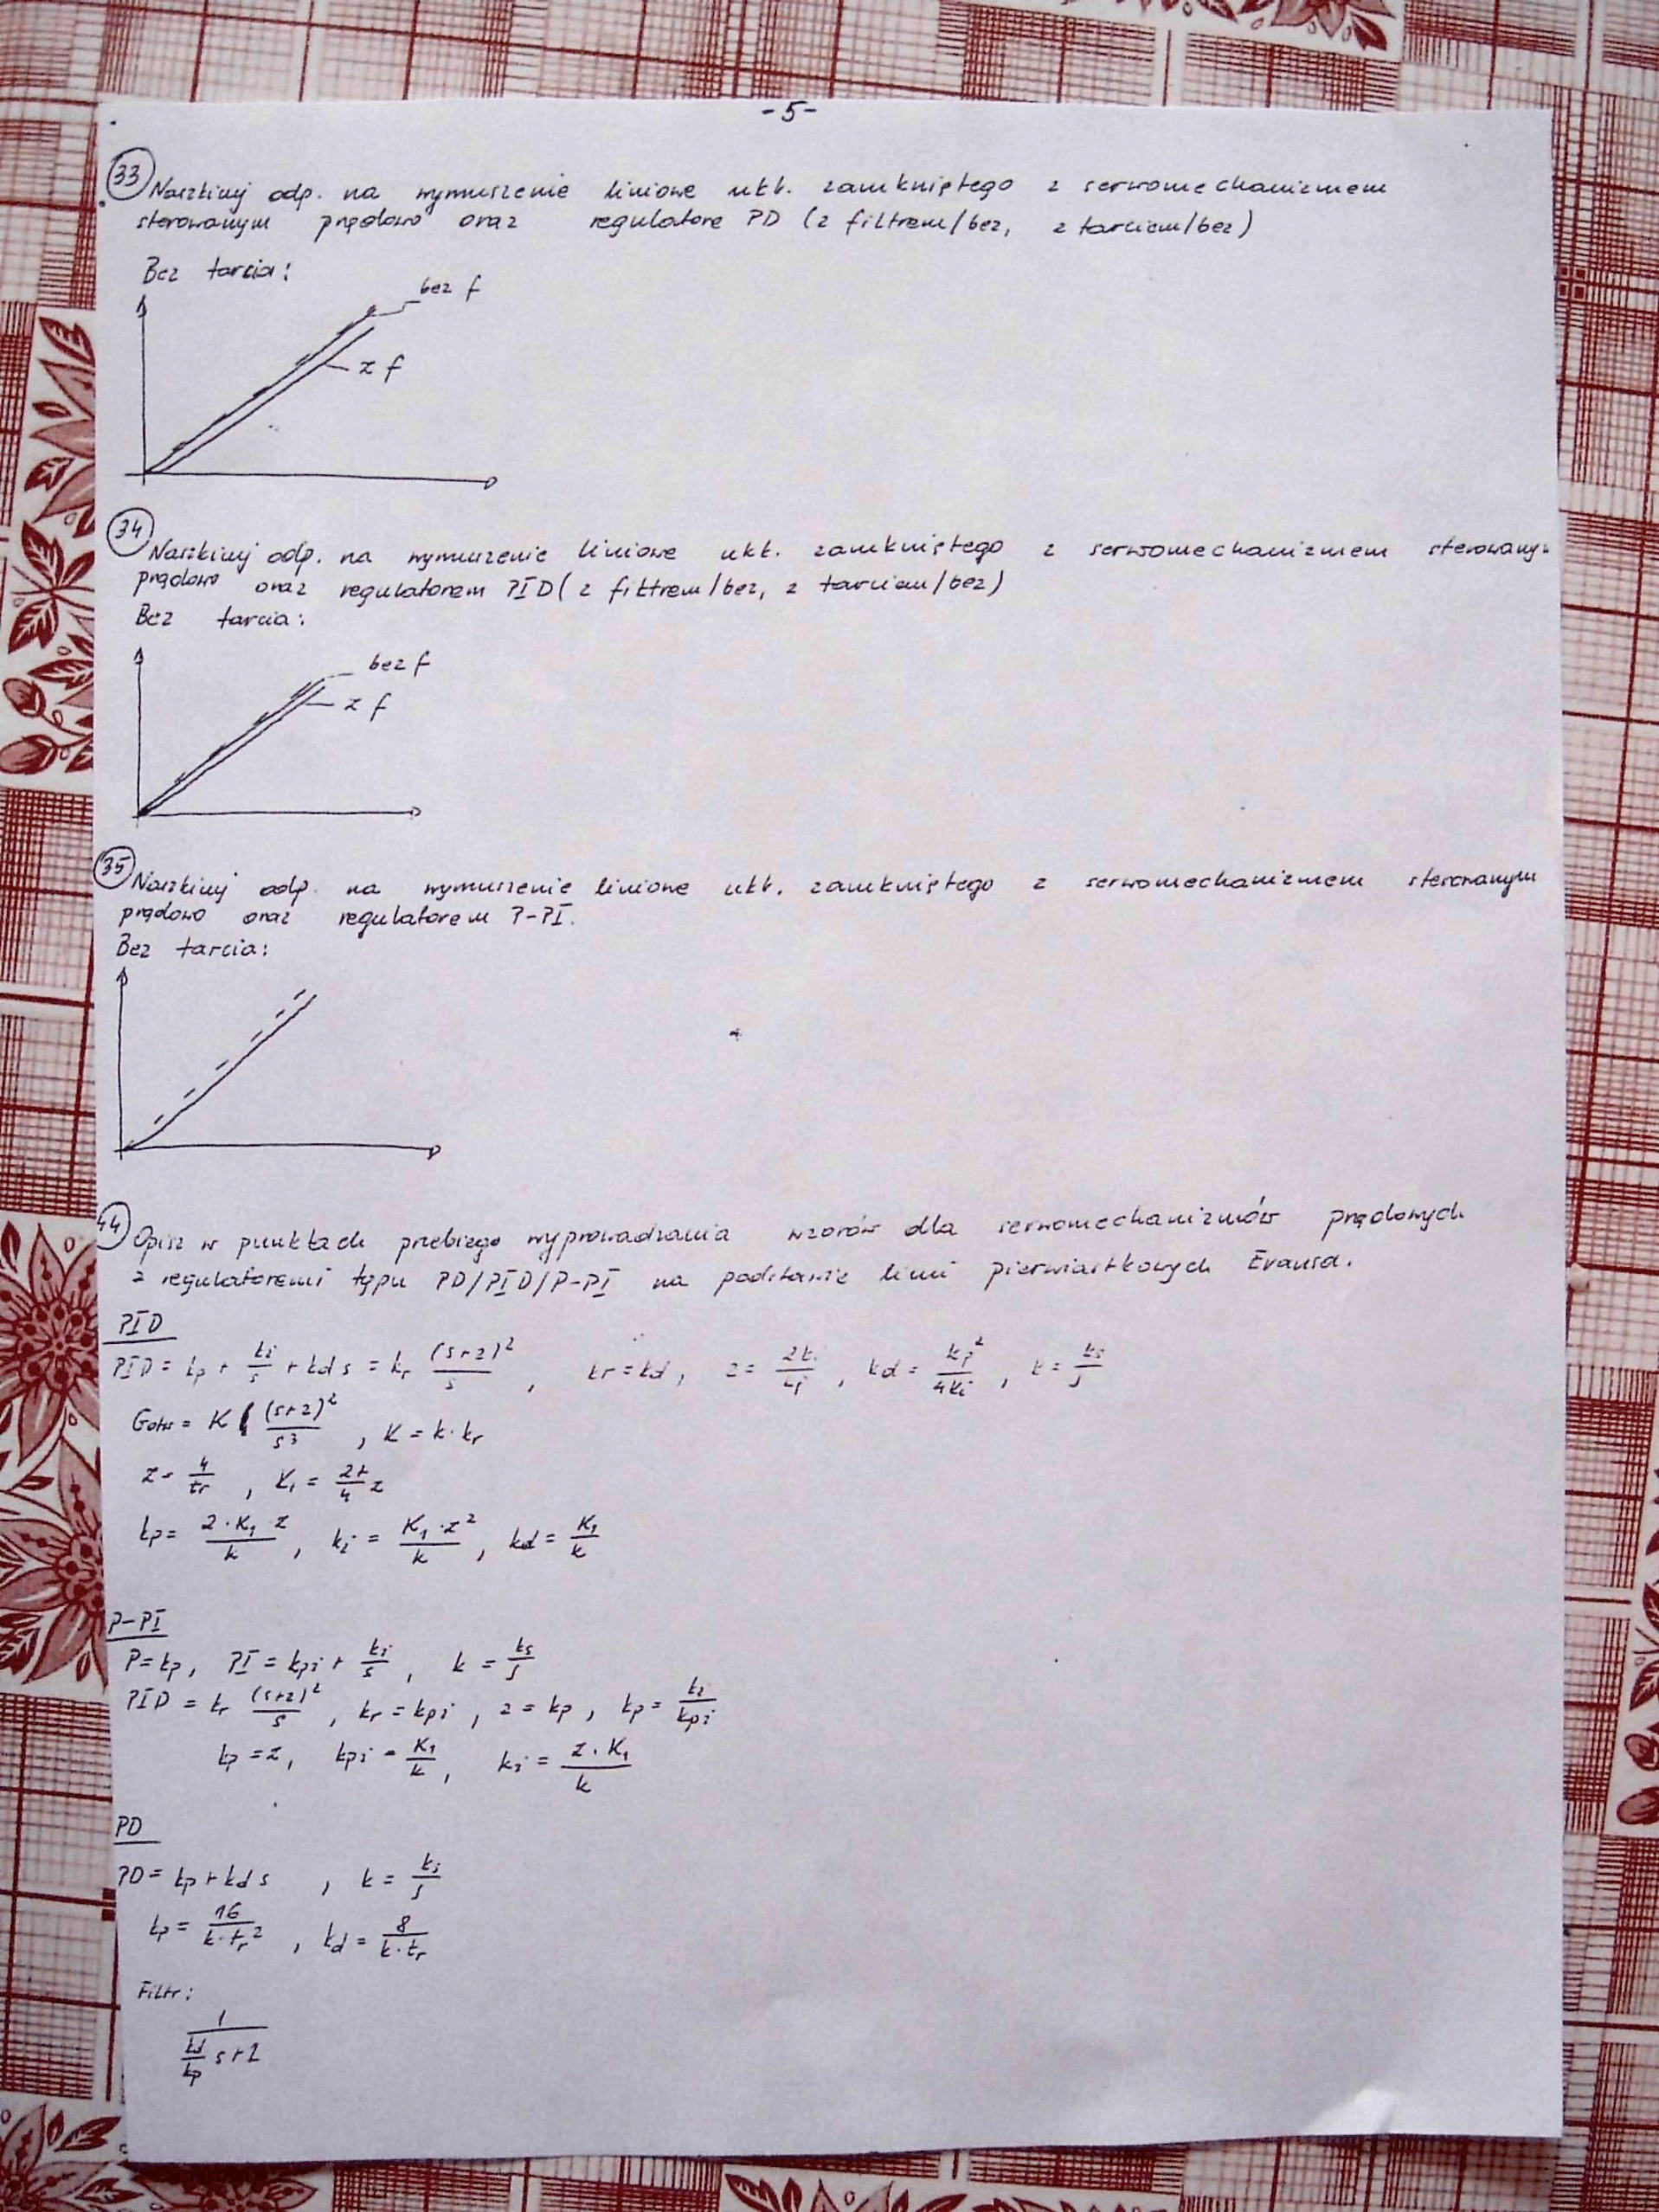 -5-
33 Naszkicuj odp. na wymuszenie liniowe ukł. zamkniętego z serwomechanizmem
sterowanym prądowo oraz regulatore PD (z filtrem/bez, z tarciem/bez)
Bez tarcia:
bez f
z f
34 Naszkicuj odp. na wymuszenie liniowe ukł. zamkniętego z serwomechanizmem sterowanym
prądowo oraz regulatorem PID (z filtrem/bez, z tarciem/bez)
Bez tarcia:
bez f
z f
35 Naszkicuj odp. na wymuszenie liniowe ukł. zamkniętego z serwomechanizmem sterowanym
prądowo oraz regulatorem P-PI.
Bez tarcia:
44 Opisz w punktach przebiego wyprowadzania wzorów dla serwomechanizmów prądowych
z regulatoremi typu PD/PID/P-PI na podstawie linii pierwiastkowych Evansa.
PID
PID = kp + ki/s + kd s = kr (s+z)²/s , kr = kd, , kd = kp²/4ki , k = ks/J
Gotw = K (s+z)²/s³ , K = k·kr
z = 4/tr , K1 = 27/4 z
kp = 2·K1·z/k , ki = K1·z²/k , kd = K1/k
P-PI
P = kp, PI = kpi + ki/s , k = ks/J
PID = kr (s+z)²/s , kr = kpi , z = kp , kp = ki/kpi
kp = z, kpi = K1/k , ki = z·K1/k
PD
PD = kp + kd s , k = ks/J
kp = 16/k·tr² , kd = 8/k·tr
Filtr:
1/(kd/kp s+1)